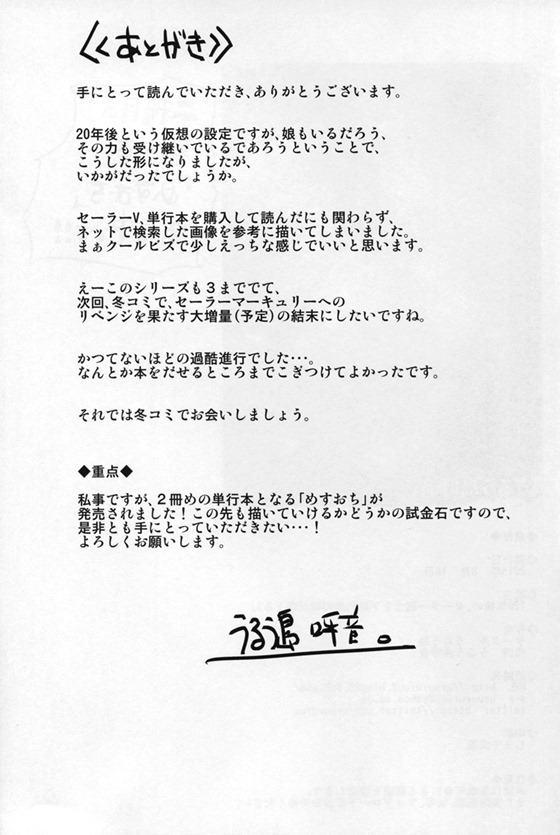 ≪あとがき≫
手にとって読んでいただき、ありがとうございます。
20年後という仮想の設定ですが、娘もいるだろう、
その力も受け継いでいるであろうということで、
こうした形になりましたが、
いかがだったでしょうか。
セーラーV、単行本を購入して読んだにも関わらず、
ネットで検索した画像を参考に描いてしまいました。
まぁクールビズで少しえっちな感じでいいと思います。
えーこのシリーズも3まででて、
次回、冬コミで、セーラーマーキュリーへの
リベンジを果たす大増量(予定)の結末にしたいですね。
かつてないほどの過酷進行でした・・・。
なんとか本をだせるところまでこぎつけてよかったです。
それでは冬コミでお会いしましょう。
◆重点◆
私事ですが、2冊めの単行本となる「めすおち」が
発売されました!この先も描いていけるかどうかの試金石ですので、
是非とも手にとっていただきたい・・・!
よろしくお願いします。
うる嶋 呼音。